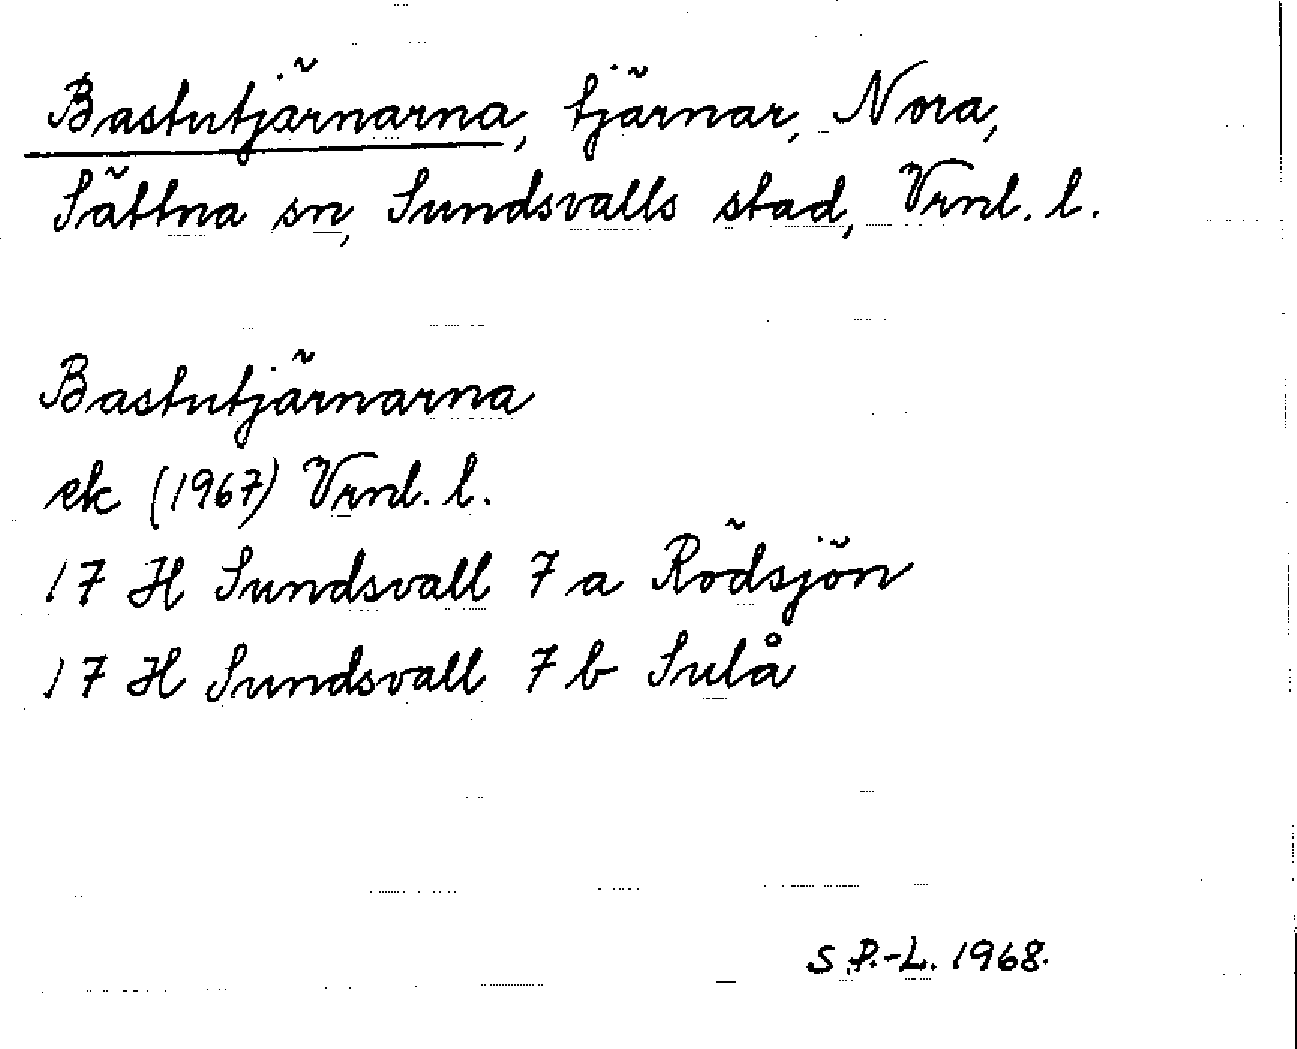 Bastutjärnarna, tjärnar, Nora,
Sättna sn, Sundsvalls stad, Vrnl. l.
Bastutjärnarna
ek (1967) Vrnl. l.
17 H Sundsvall 7 a Rödsjön
17 H Sundsvall 7 b Sulå
S.P.-L. 1968.